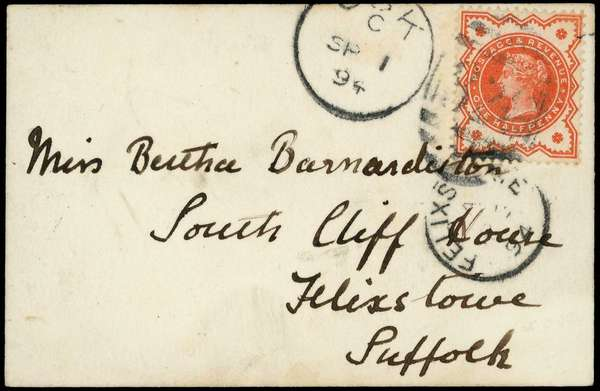 C
SP 1
94
POSTAGE & REVENUE
ONE HALFPENNY
Miss Bertha Barnardiston
South Cliff House
Felixstowe
Suffolk
FELIXS